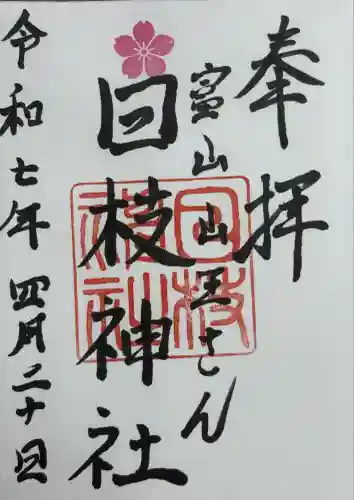 奉拝
富山山王さん
日枝神社
令和七年四月二十日
日枝神社